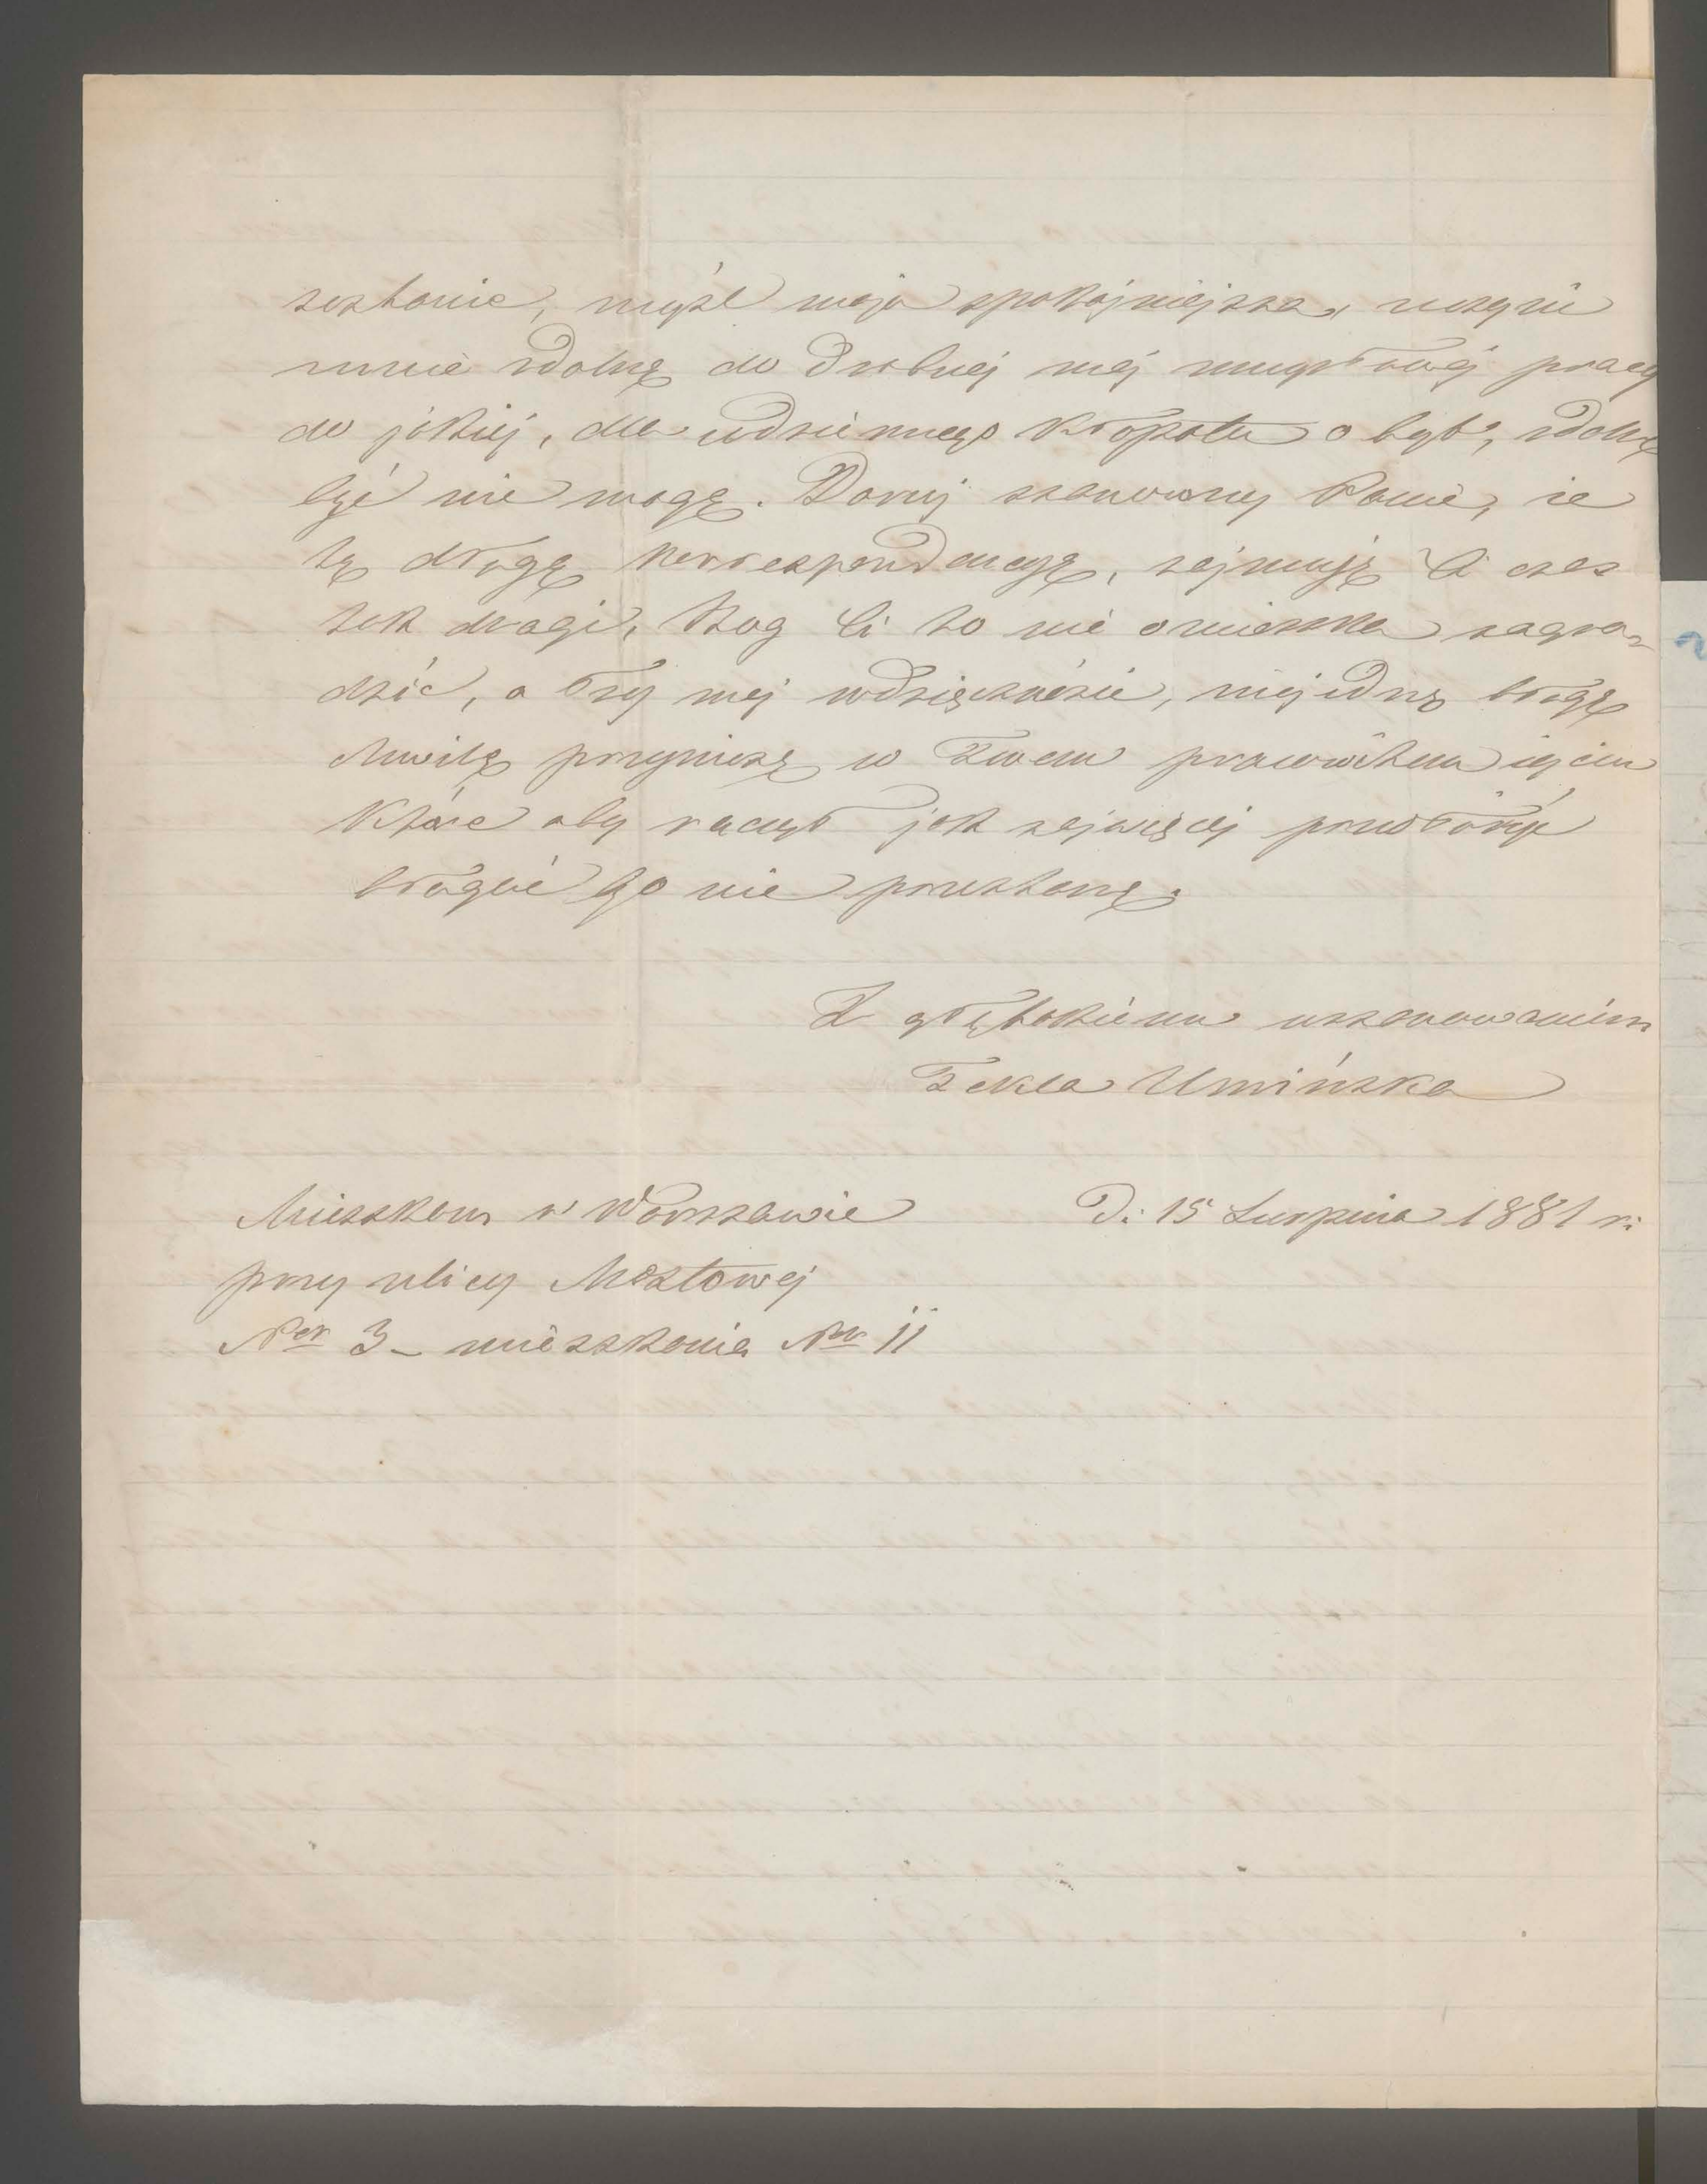 zostanie, myśl moja spokojniejsza, uczyni
mnie zdolną do drobnej mej umysłowej pracy
do jakiej, dla codziennego kłopotu o byt, zdolną
być nie mogę. Daruj szanowny Panie, że
tą drogą korrespondencyą, zajmuję Ci czas
tak drogi, Bóg Ci to nie omieszka nagro-
dzić, a łzy mej wdzięczności, niejedną błogą
chwilę przyniosą w Twem prawowitem życiu
które aby raczył jak najwięcej przedłużyć
błagać Go nie przestanę.
Z głębokiém uszanowaniem
Tekla Umińska
Mieszkam w Warszawie
D: 15 Sierpnia 1881 r:
przy ulicy Mostowej
Ner 3 – mieszkania Ner 11